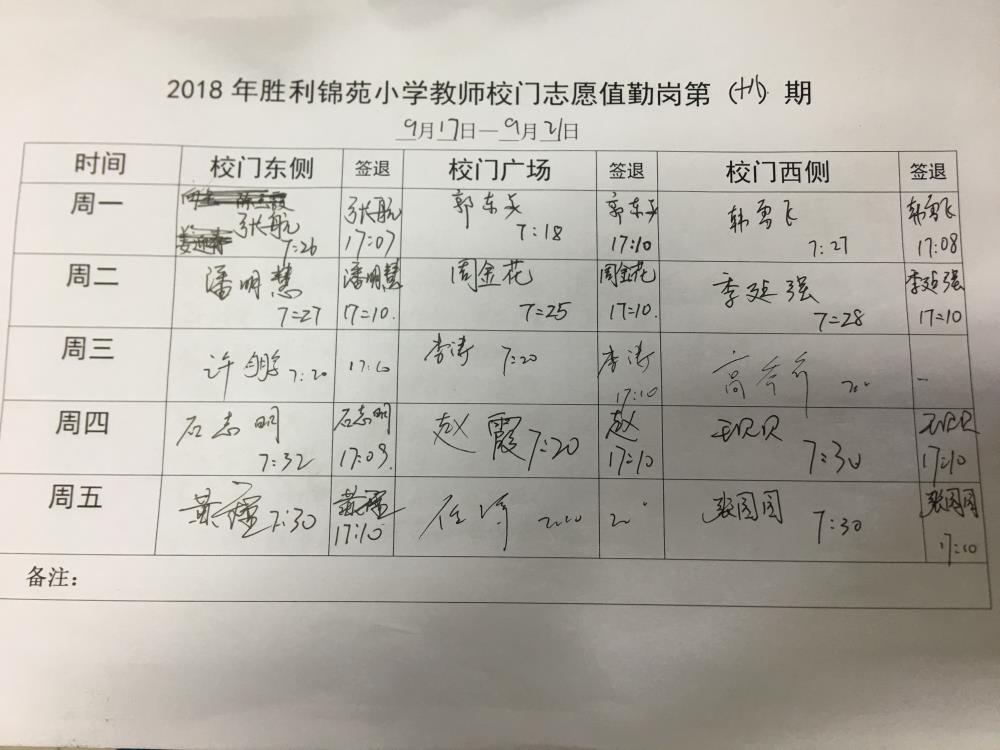 2018 年胜利锦苑小学教师校门志愿值勤岗第 (十八) 期
9月17日—9月21日
时间 校门东侧 签退 校门广场 签退 校门西侧 签退
周一 张航 7:26 张航 17:07 郭东兵 7:18 郭东兵 17:10 韩勇飞 7:27 韩勇飞 17:08
周二 潘明慧 7:27 潘明慧 17:10. 周金花 7:25 周金花 17:10. 季延强 7:28 季延强 17:10
周三 许鹏 7:20 17:10 李涛 7:20 李涛 17:10 高
周四 石志明 7:32 石志明 17:09. 赵霞 7:20 赵 17:10 王贝贝 7:30 王贝贝 17:10
周五 黄 7:30 黄 17:10 任 张园园 7:30 张园园 17:10
备注: